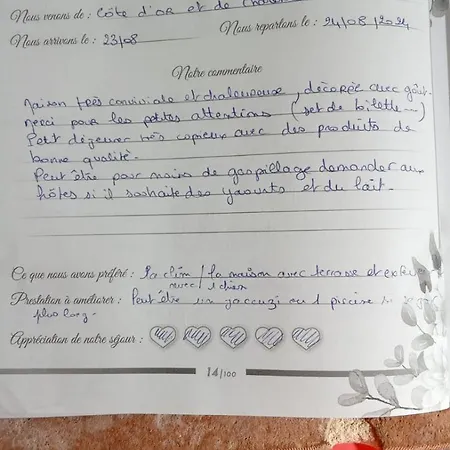 Nous venons de : Côte d'or et de
Nous arrivons le : 23/08 Nous repartons le : 24/08/2024
Notre commentaire
Maison très conviviale et chaleureuse, décorée avec goût.
Merci pour les petites attentions (set de toilette ...)
Petit déjeuner très copieux avec des produits de
bonne qualité.
Peut être pour moins de gaspillage demander aux
hôtes si il souhaite des yaourts et du lait.
Ce que nous avons préféré : la clim / la maison avec terrasse et
avec 1 chien
Prestation à améliorer : Peut être un jacuzzi ou 1 piscine
plus
Appréciation de notre séjour :
14/100